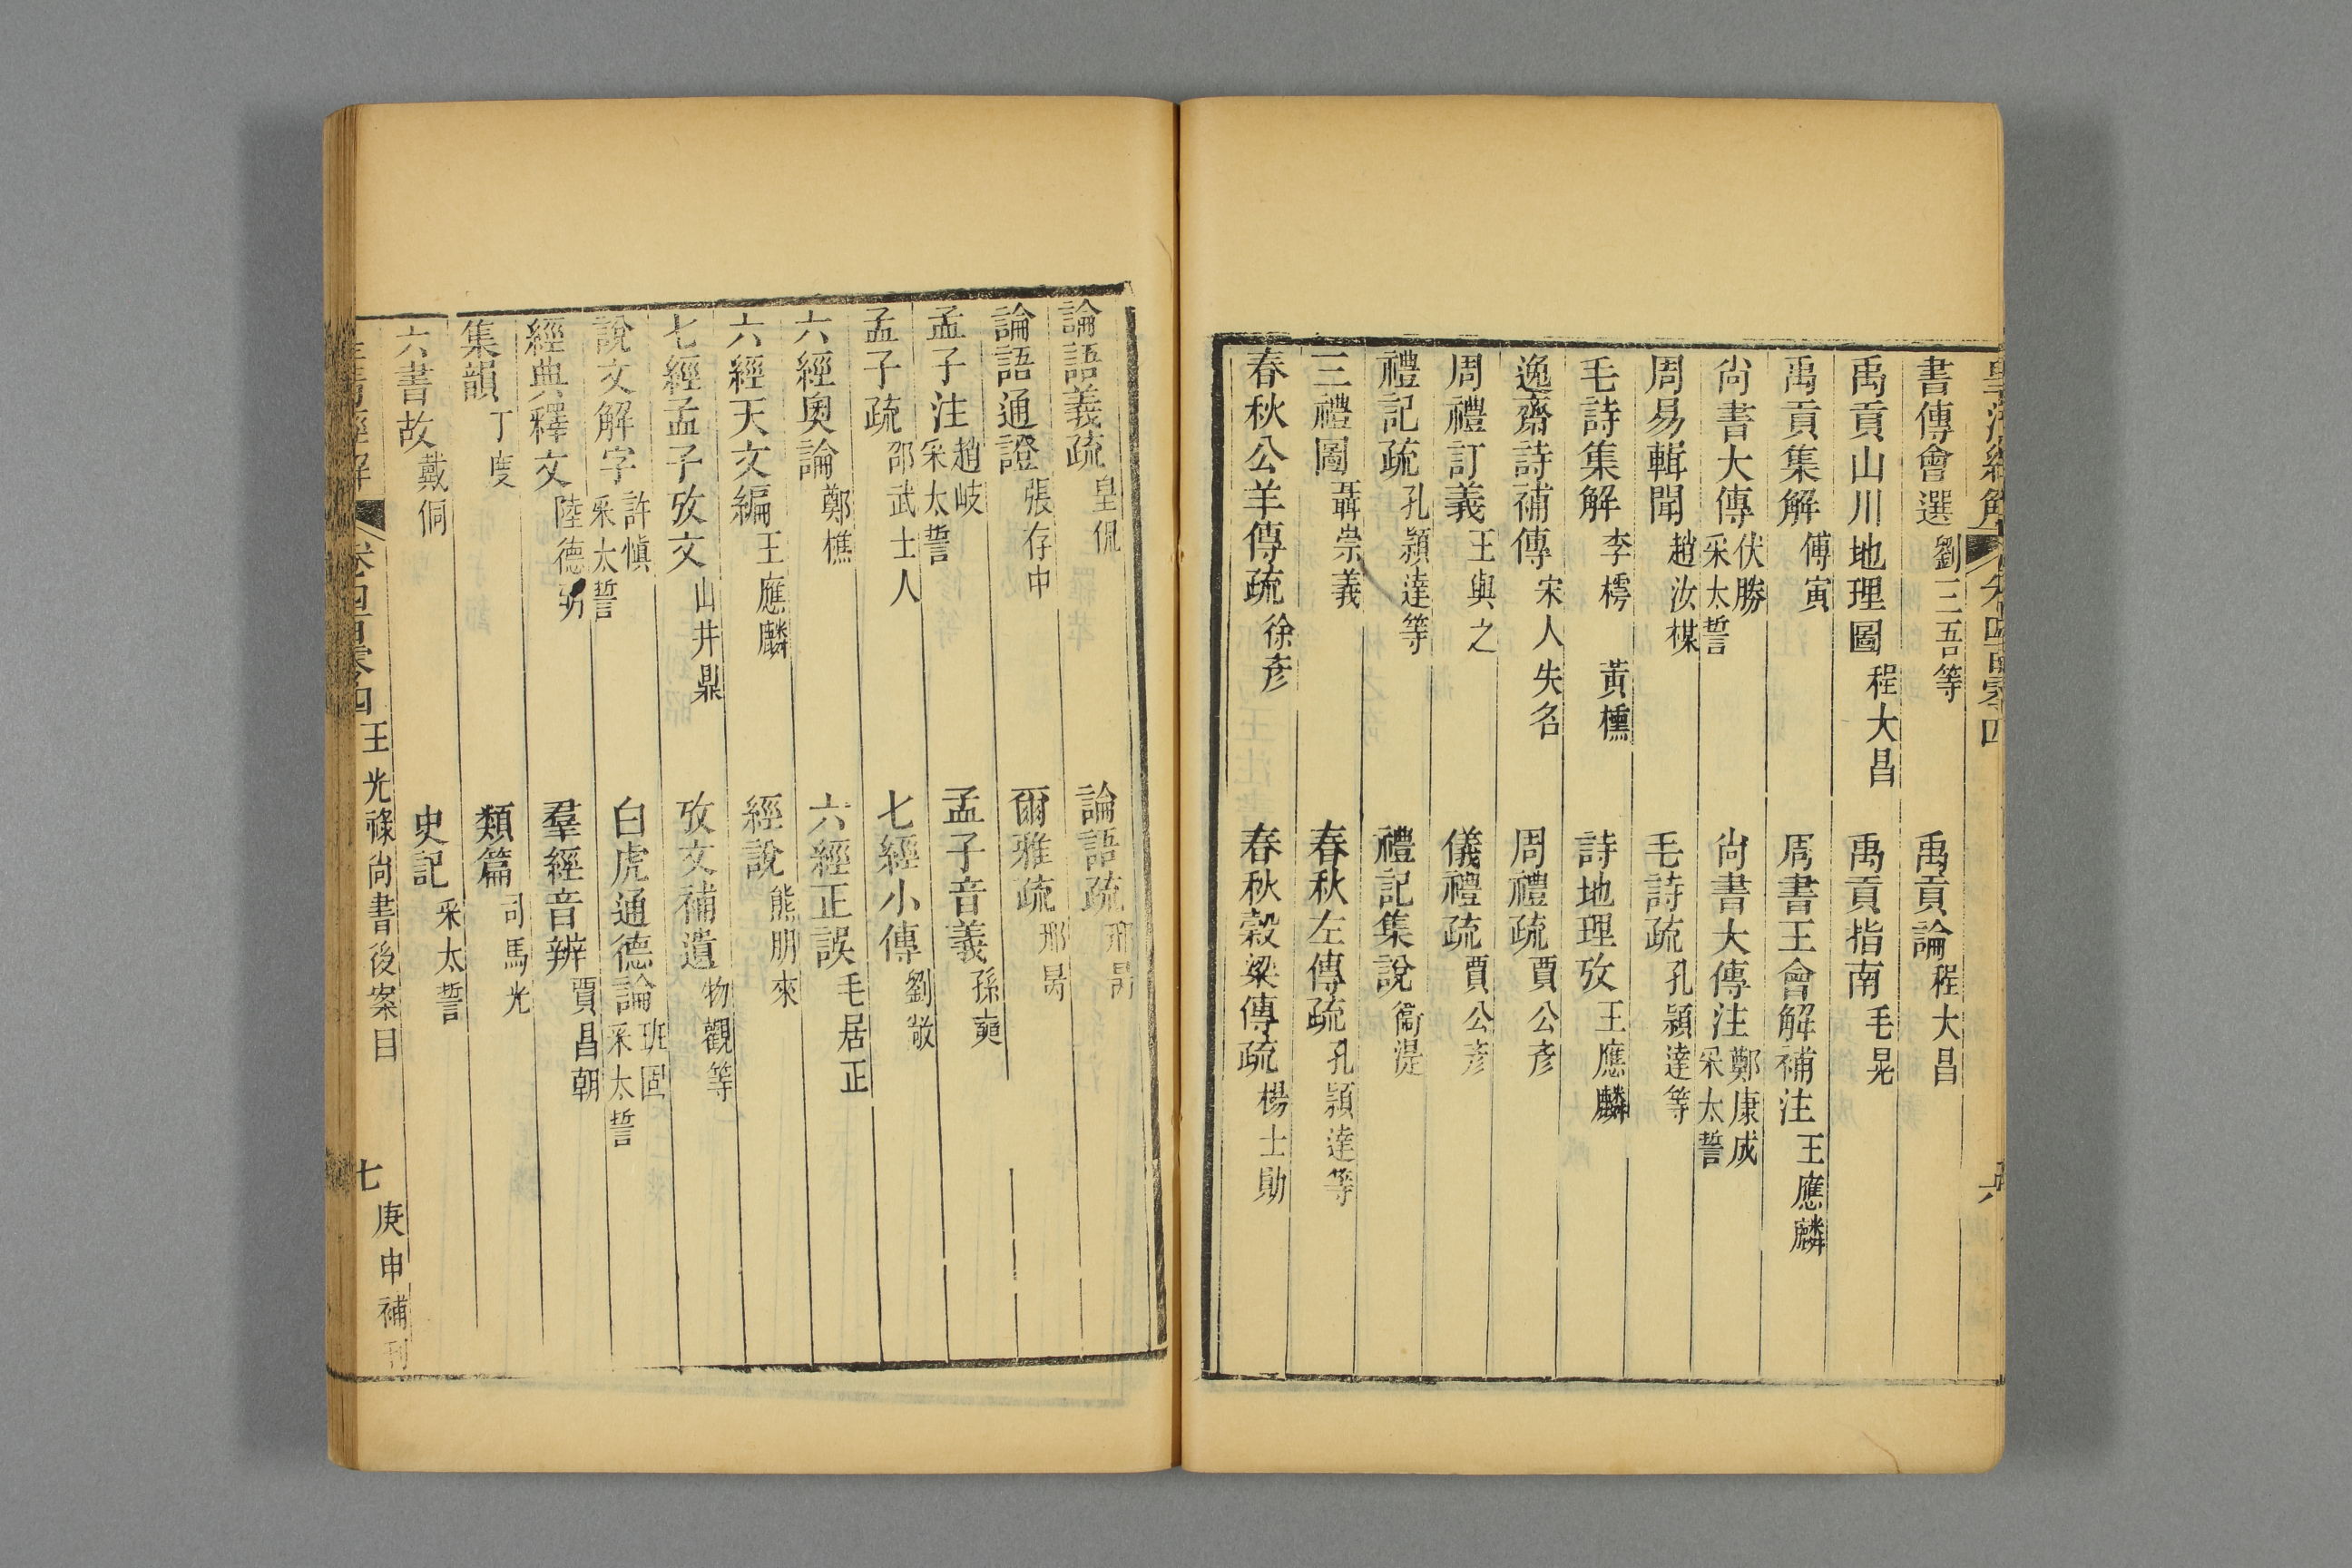 皇清經解 卷四百零四 六
書傳會選 劉三吾等 禹貢論 程大昌
禹貢山川地理圖 程大昌 禹貢指南 毛晃
禹貢集解 傅寅 周書王會解補注 王應麟
尙書大傳 伏勝 采太誓 尙書大傳注 鄭康成 采太誓
周易輯聞 趙汝楳 毛詩疏 孔穎達等
毛詩集解 李樗 黃櫄 詩地理攷 王應麟
逸齋詩補傳 宋人失名 周禮疏 賈公彥
周禮訂義 王與之 儀禮疏 賈公彥
禮記疏 孔穎達等 禮記集說 衞湜
三禮圖 聶崇義 春秋左傳疏 孔穎達等
春秋公羊傳疏 徐彥 春秋穀梁傳疏 楊士勛
論語義疏 皇侃 論語疏 邢昺
論語通證 張存中 爾雅疏 邢昺
孟子注 趙岐 采太誓 孟子音義 孫奭
孟子疏 邵武士人 七經小傳 劉敞
六經奧論 鄭樵 六經正誤 毛居正
六經天文編 王應麟 經說 熊朋來
七經孟子攷文 山井鼎 攷文補遺 物觀等
說文解字 許愼 采太誓 白虎通德論 班固 采太誓
經典釋文 陸德明 羣經音辨 賈昌朝
集韻 丁度 類篇 司馬光
六書故 戴侗 史記 采太誓
皇清經解 卷四百零四 王光祿尙書後案目 七 庚申補刊